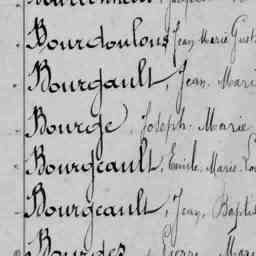 Bourdoulous Jean Marie
Bourgault, Jean. Mari
Bourge, Joseph. Marie
Bourgeault, Emile. Marie.
Bourgeault, Jean. Baptis
Bourges, Pierre